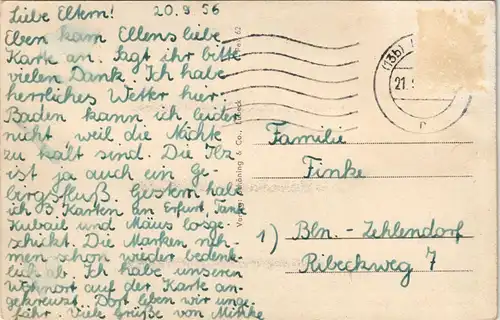 Liebe Eltern! 20.9.56
Eben kam Ellens liebe
Karte an. Sagt ihr bitte
vielen Dank. Ich habe
herrliches Wetter hier.
Baden kann ich leider
nicht weil die Nächte
zu kalt sind. Die Ilz
ist ja auch ein Ge-
birgsfluß. Gestern habe
ich 3 Karten an Erfurt, Tante
und Maus losge-
schickt. Die Marken neh-
men schon wieder bedenk-
lich ab. Ich habe unseren
Wohnort auf der Karte an-
gekreuzt. Dort leben wir unge-
fähr. Viele Grüße von
Verlag Schöning & Co., Lübeck
(13b)
21.
Familie
Finke
1) Bln.-Zehlendorf
Ribeckweg 7